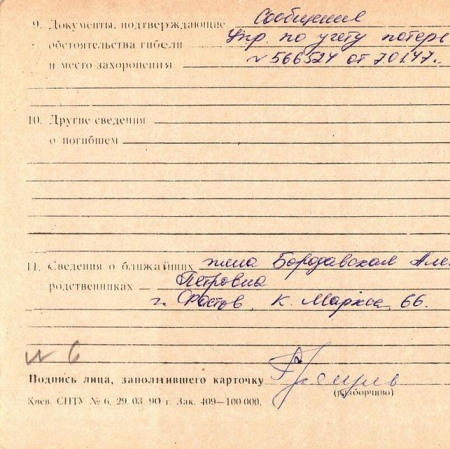 9. Документы, подтверждающие Сообщение
обстоятельства гибели Упр по учету потерь
и место захоронения № 566524 от 7.01.47.
10. Другие сведения
о погибшем
11. Сведения о ближайших жена Бородавская Але
родственниках Петровна
г. Ростов, К. Маркса, 66.
№ 6
Подпись лица, заполнившего карточку
(разборчиво)
Киев. СПТУ № 6, 29. 03. 90 г. Зак. 409—100 000.